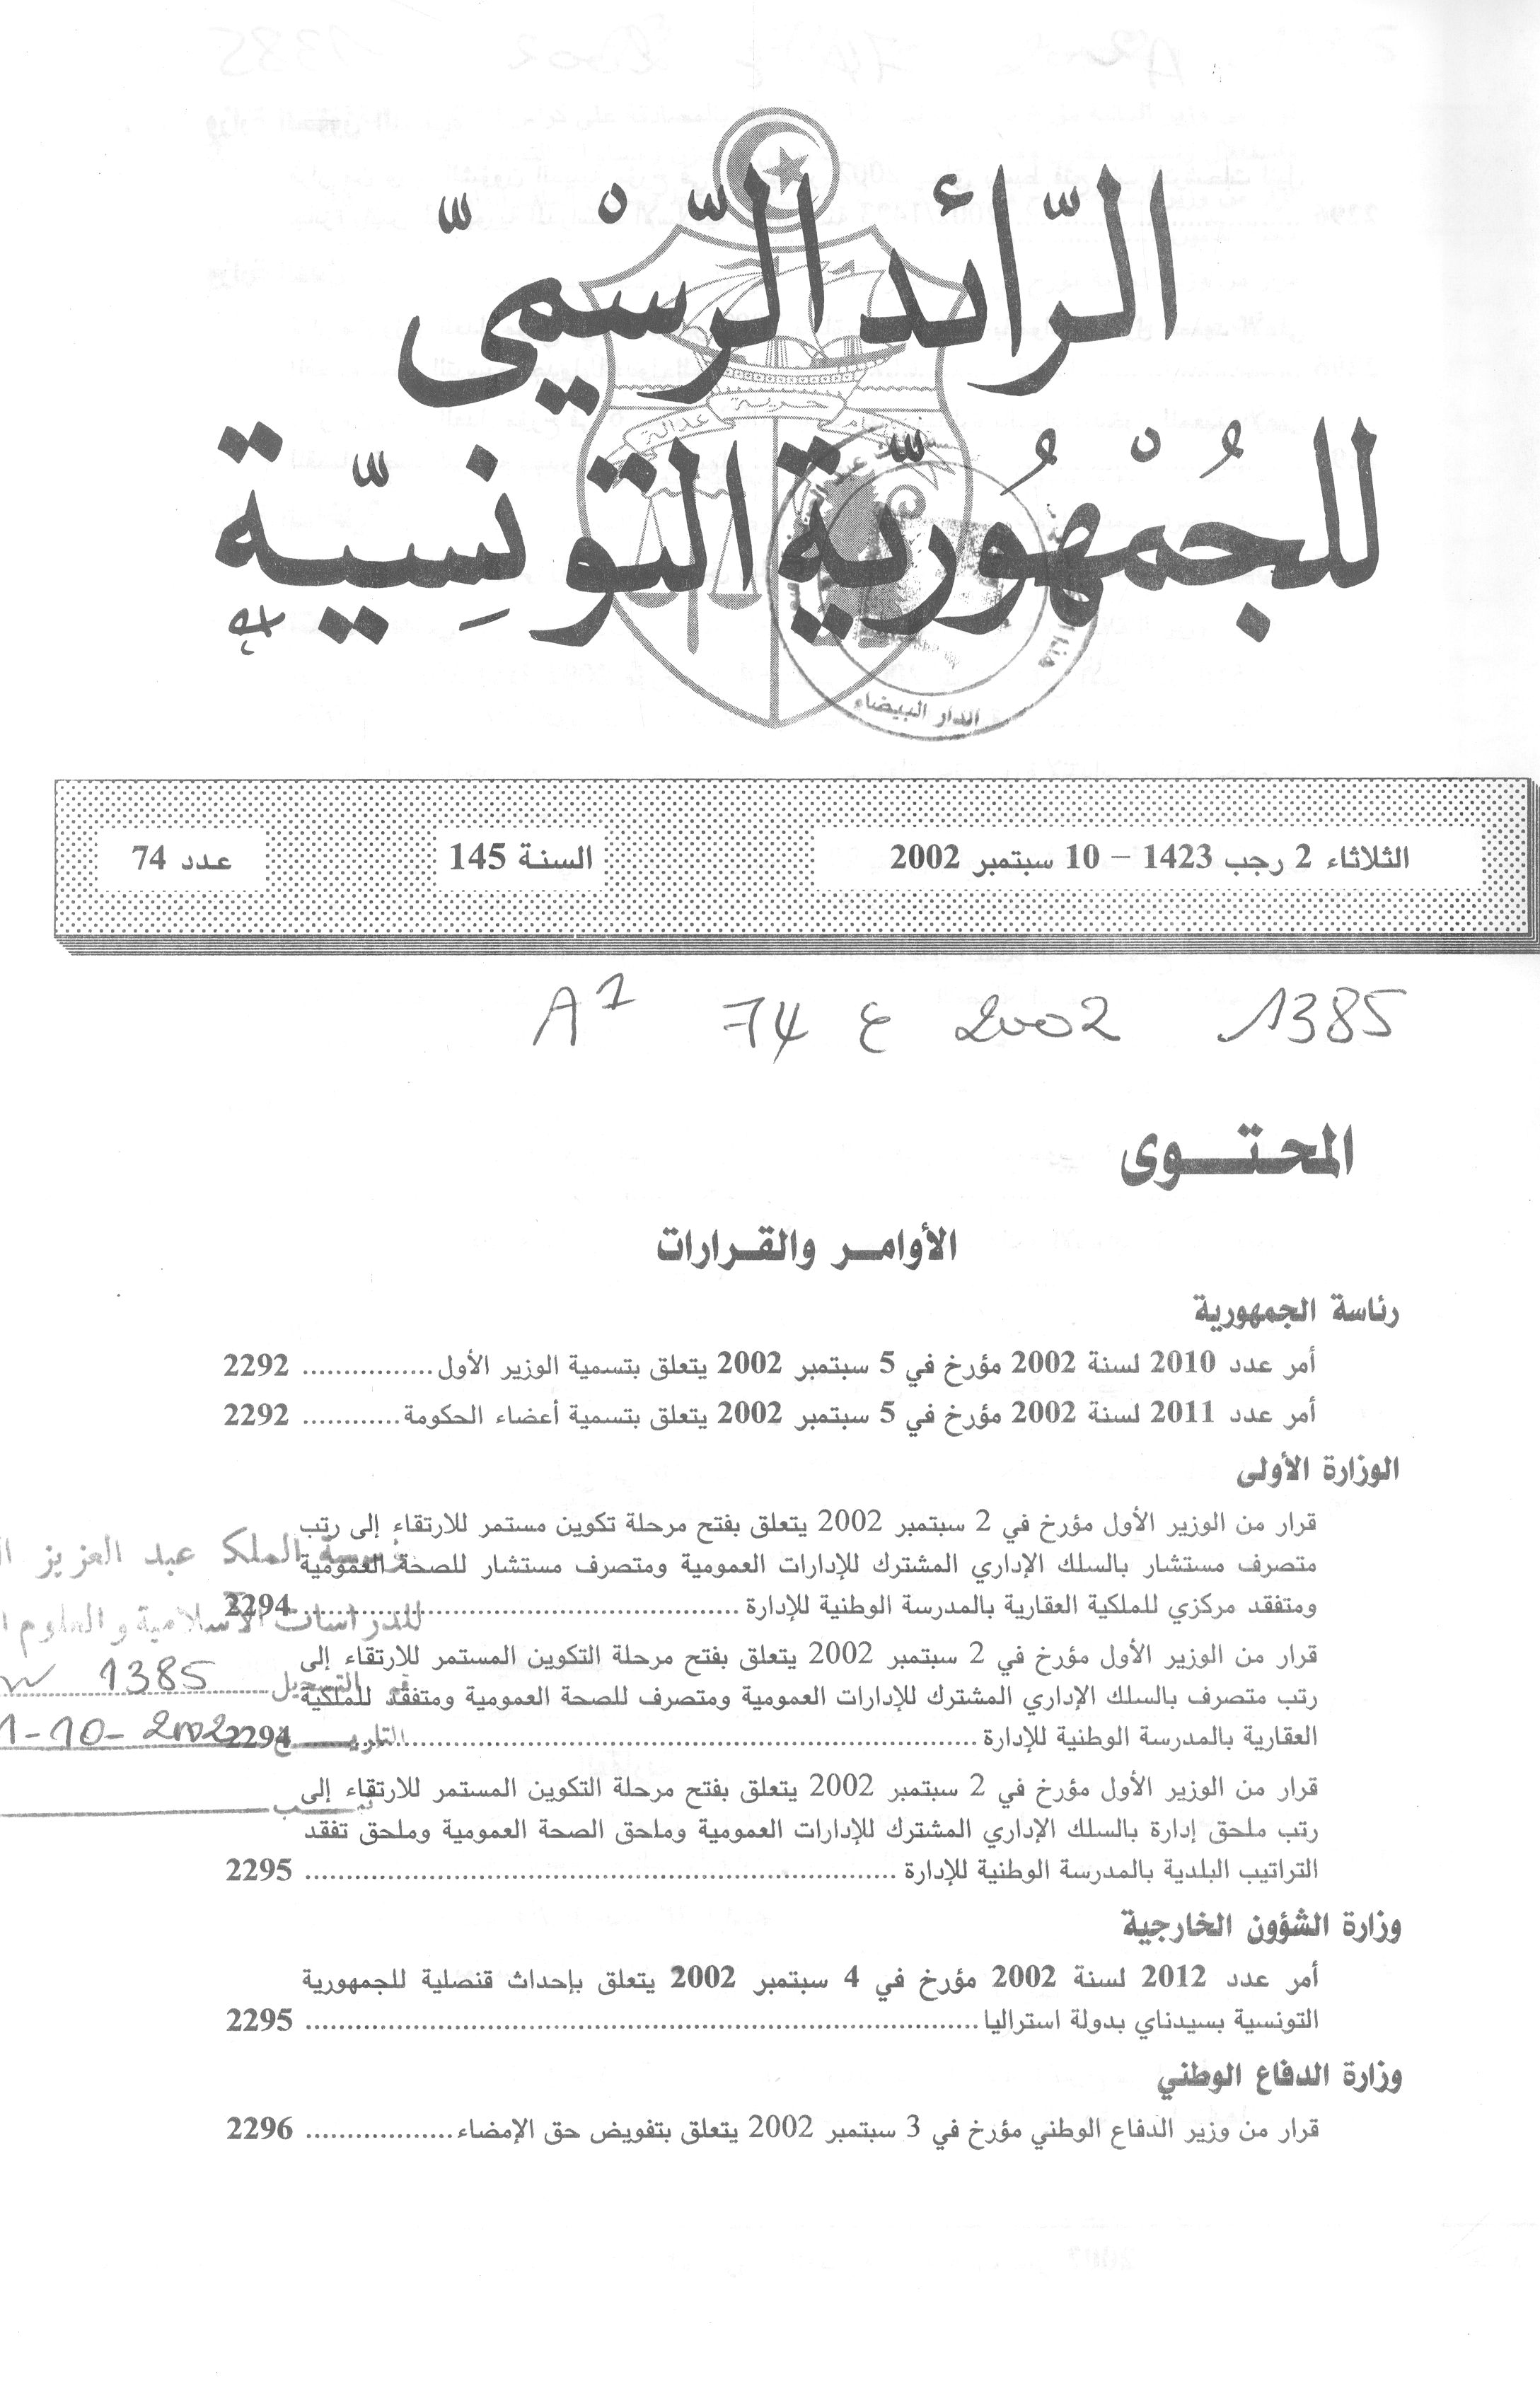 الرّائد الرّسْميّ
للجُمْهُوريّة التونِسيّة
حرية
عدالة
نظام
الدار البيضاء
الثلاثاء 2 رجب 1423 – 10 سبتمبر 2002
السنة 145
عدد 74
A 74 ع 2002 1385
المحتــوى
الأوامـر والقـرارات
رئاسة الجمهورية
أمر عدد 2010 لسنة 2002 مؤرخ في 5 سبتمبر 2002 يتعلق بتسمية الوزير الأول ................ 2292
أمر عدد 2011 لسنة 2002 مؤرخ في 5 سبتمبر 2002 يتعلق بتسمية أعضاء الحكومة ............ 2292
الوزارة الأولى
قرار من الوزير الأول مؤرخ في 2 سبتمبر 2002 يتعلق بفتح مرحلة تكوين مستمر للارتقاء إلى رتب
متصرف مستشار بالسلك الإداري المشترك للإدارات العمومية ومتصرف مستشار للصحة العمومية
ومتفقد مركزي للملكية العقارية بالمدرسة الوطنية للإدارة ................ 2294
قرار من الوزير الأول مؤرخ في 2 سبتمبر 2002 يتعلق بفتح مرحلة التكوين المستمر للارتقاء إلى
رتب متصرف بالسلك الإداري المشترك للإدارات العمومية ومتصرف للصحة العمومية ومتفقد للملكية
العقارية بالمدرسة الوطنية للإدارة ................ 2294
قرار من الوزير الأول مؤرخ في 2 سبتمبر 2002 يتعلق بفتح مرحلة التكوين المستمر للارتقاء إلى
رتب ملحق إدارة بالسلك الإداري المشترك للإدارات العمومية وملحق الصحة العمومية وملحق تفقد
التراتيب البلدية بالمدرسة الوطنية للإدارة ................ 2295
الملك عبد العزيز
للدراسات الاسلامية والعلوم
التسجيل 1385
التاريـخ 1-10-2002
وزارة الشؤون الخارجية
أمر عدد 2012 لسنة 2002 مؤرخ في 4 سبتمبر 2002 يتعلق بإحداث قنصلية للجمهورية
التونسية بسيدناي بدولة استراليا ................ 2295
وزارة الدفاع الوطني
قرار من وزير الدفاع الوطني مؤرخ في 3 سبتمبر 2002 يتعلق بتفويض حق الإمضاء ................ 2296